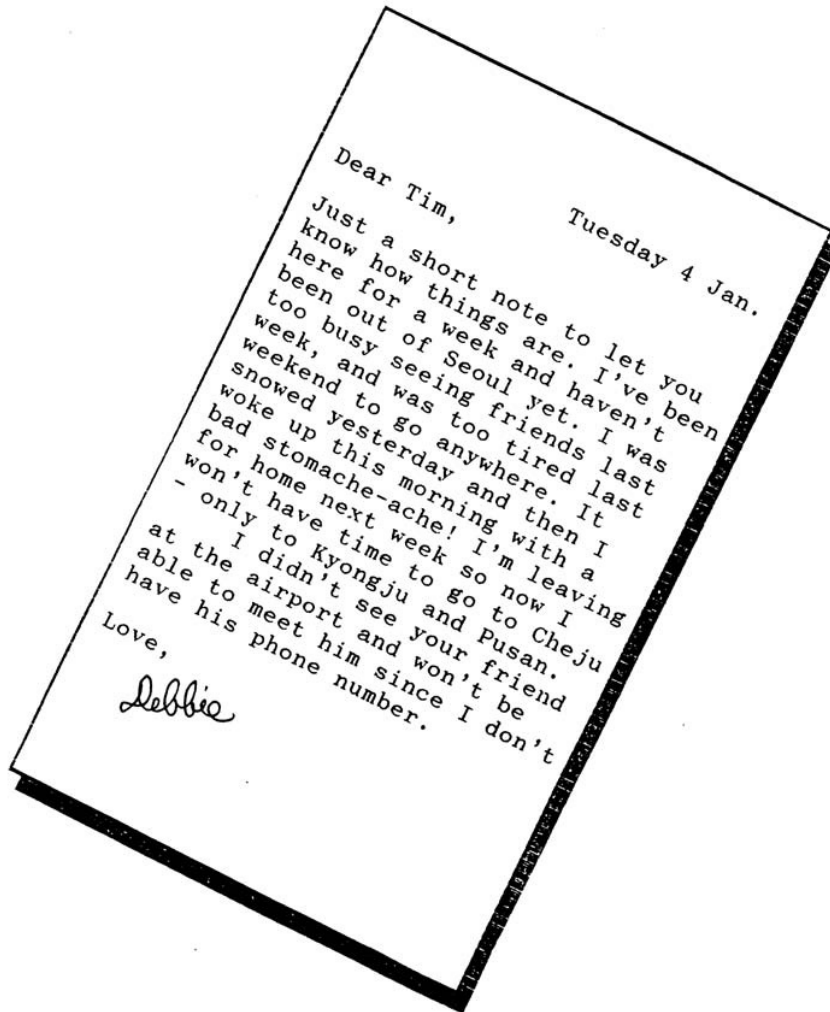 Tuesday 4 Jan.
Dear Tim,
Just a short note to let you
know how things are. I've been
here for a week and haven't
been out of Seoul yet. I was
too busy seeing friends last
week, and was too tired last
weekend to go anywhere. It
snowed yesterday and then I
woke up this morning with a
bad stomache-ache! I'm leaving
for home next week so now I
won't have time to go to Cheju
- only to Kyongju and Pusan.
I didn't see your friend
at the airport and won't be
able to meet him since I don't
have his phone number.
Love,
Debbie